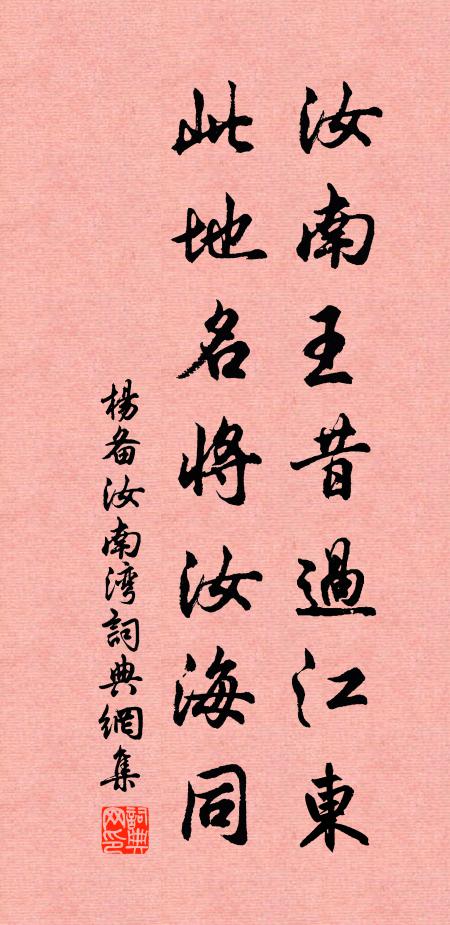 汝南王昔過江東
此地名將汝海同
楊备汝南湾詞典網集
詞典网印